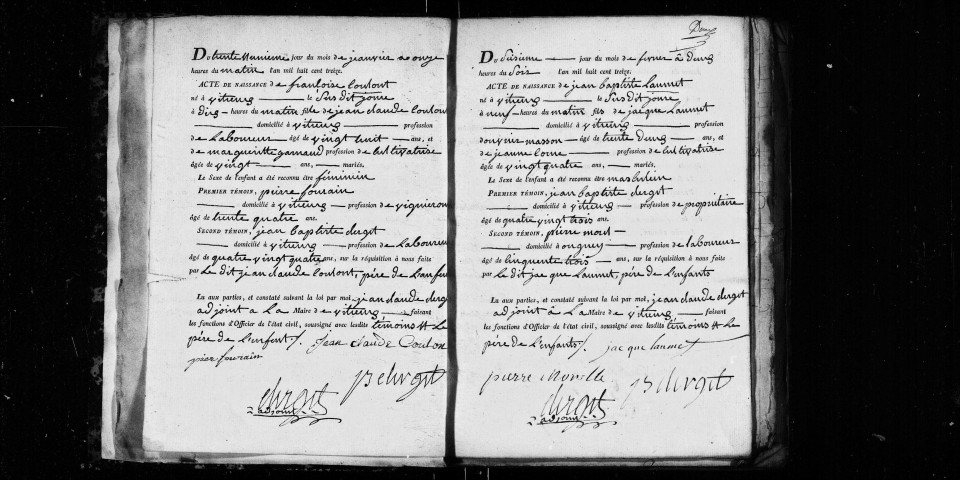 Du trente uunieme jour du mois de jeanvier a onze
heures du matin l'an mil huit cent treize.
ACTE DE NAISSANCE de francloise coulont
né à vitreux le susdit jour
à dix heures du matin fille de jean claude coulon
domicilié à vitreux profession
de laboureur âgé de vingt huit ans, et
de margueritte garnaud profession de cultivatrise
âgée de vingt ans, mariés.
Le Sexe de l'enfant a été reconnu être féminin
PREMIER TÉMOIN, pierre fourain
domicilié à vitreux profession de vigneron
âgé de trente quatre ans.
SECOND TÉMOIN, jean baptiste durgit
domicilié à vitreux profession de laboureur
âgé de quatre vingt quatre ans, sur la réquisition à nous faite
par le dit jean claude coulont, pére de l'enfen
Lu aux parties, et constaté suivant la loi par moi, jean claude durgit
adjoint a la Maire de vitreux faisant
les fonctions d'Officier de l'état civil, soussigné avec lesdits témoins et le
pére de l'enfent /. jean claude Coulon
pier fourain
JB durgit
durgit
adjoint
Deux
Du sisieme jour du mois de fevrier à deux
heures du soir l'an mil huit cent treize.
ACTE DE NAISSANCE de jean baptiste launet
né à vitreux le susdit jour
à neuf heures du matin fils de jacque launet
domicilié à vitreux profession
d'ouvrier masson âgé de trente deux ans, et
de jeanne profession de cultivatrise
âgée de vingt quatre ans, mariés.
Le Sexe de l'enfant a été reconnu être masculin
PREMIER TÉMOIN, jean baptiste durgit
domicilié à vitreux profession de propriitaire
âgé de quatre vingt trois ans.
SECOND TÉMOIN, pierre
domicilié à ougney profession de laboureur
âgé de cinquente trois ans, sur la réquisition à nous faite
par le dit jacque launet, pére de l'enfents
Lu aux parties, et constaté suivant la loi par moi, jean claude durgit
adjoint à la Maire de vitreux faisant
les fonctions d'Officier de l'état civil, soussigné avec lesdits témoins et le
pére de l'enfents /. jacque launet
pierre JB durgit
durgit
adjoint